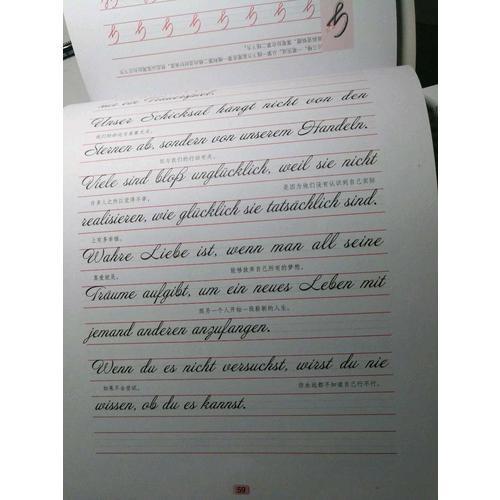 Unser Schicksal hängt nicht von den
我们的命运与星象无关，
Sternen ab, sondern von unserem Handeln.
但与我们的行动有关。
Viele sind bloß unglücklich, weil sie nicht
许多人之所以觉得不幸，
是因为他们没有认识到自己实际
realisieren, wie glücklich sie tatsächlich sind.
上有多幸福。
Wahre Liebe ist, wenn man all seine
真爱就是，
能够放弃自己所有的梦想，
Träume aufgibt, um ein neues Leben mit
跟另一个人开始一段崭新的人生。
jemand anderen anzufangen.
Wenn du es nicht versuchst, wirst du nie
如果不去尝试，
你永远都不知道自己行不行。
wissen, ob du es kannst.
59